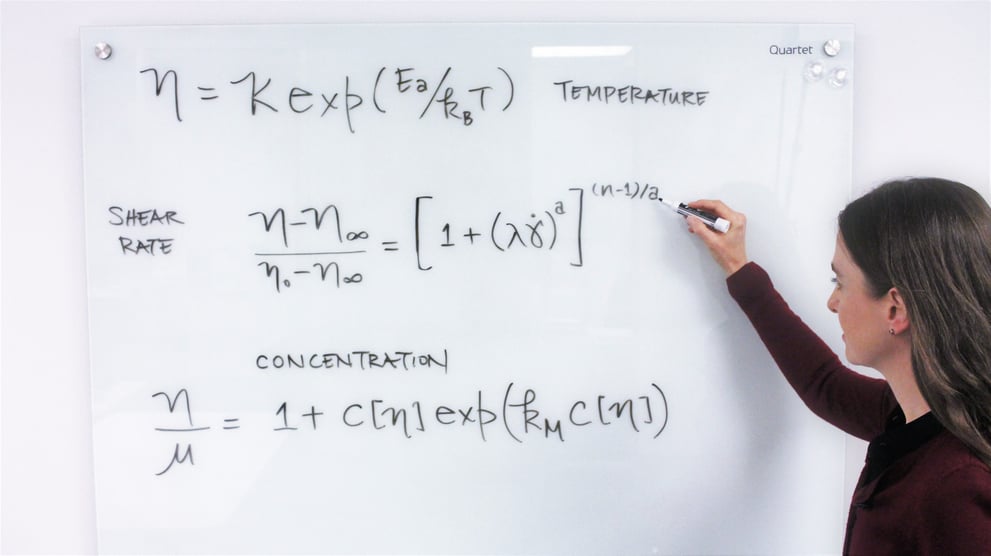 Quartet
η = K exp(Ea/k_B T) TEMPERATURE
SHEAR RATE
(η-η∞)/(η₀-η∞) = [1 + (λγ̇)^a]^((n-1)/a)
CONCENTRATION
η/μ = 1 + c[η] exp(k_M c[η])